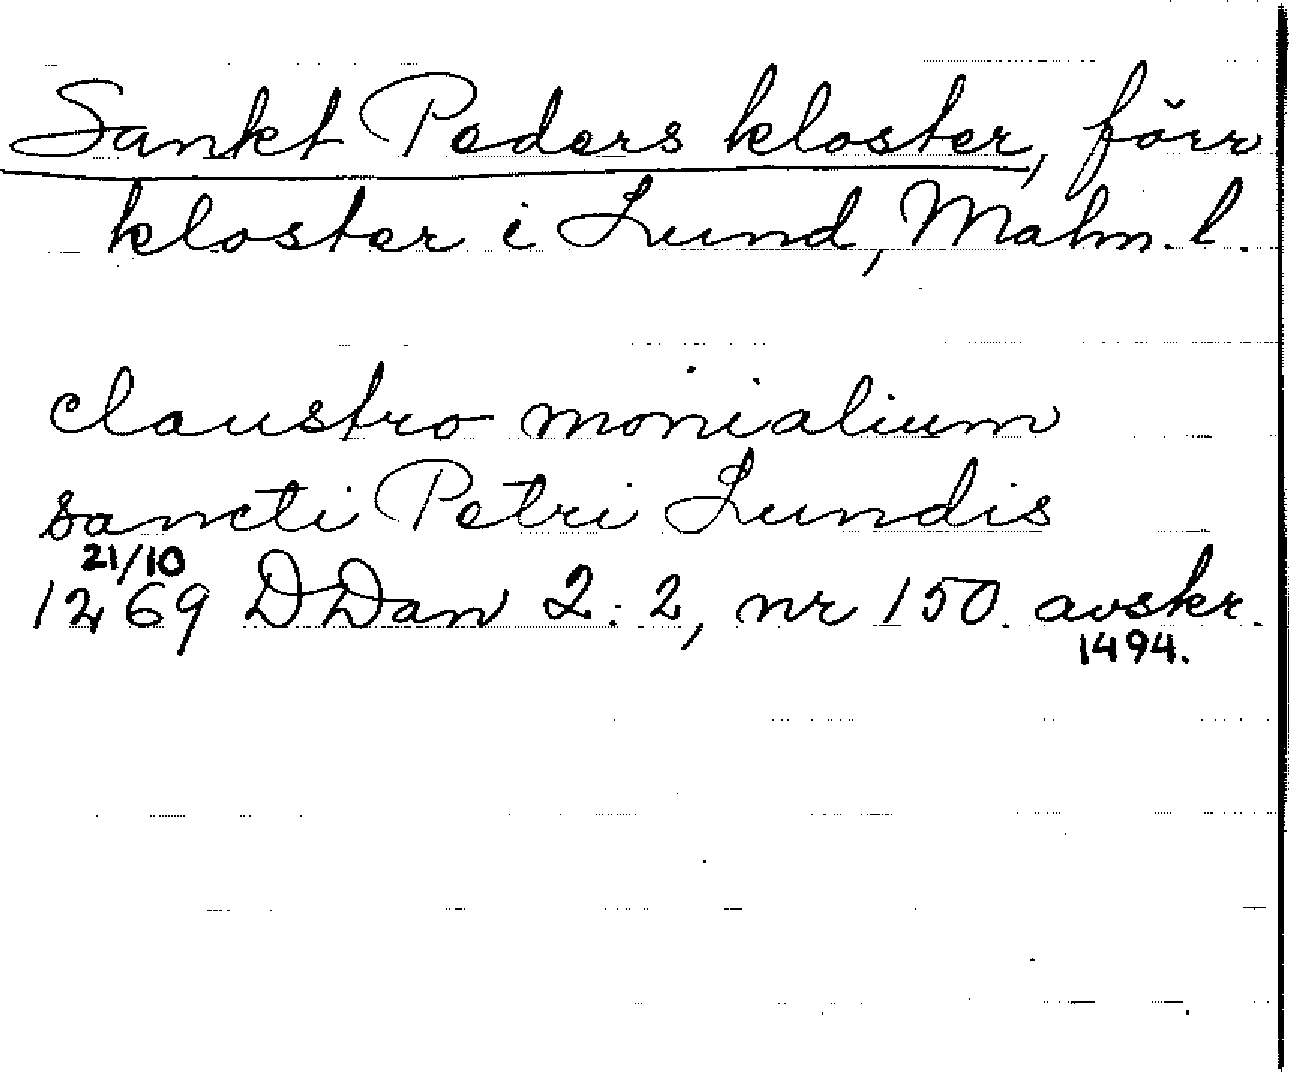 Sankt Peders kloster, förr
kloster i Lund, Malm. l.
claustro monialium
sancti Petri Lundis
21/10
1269 DDan 2:2, nr 150. avskr.
1494.